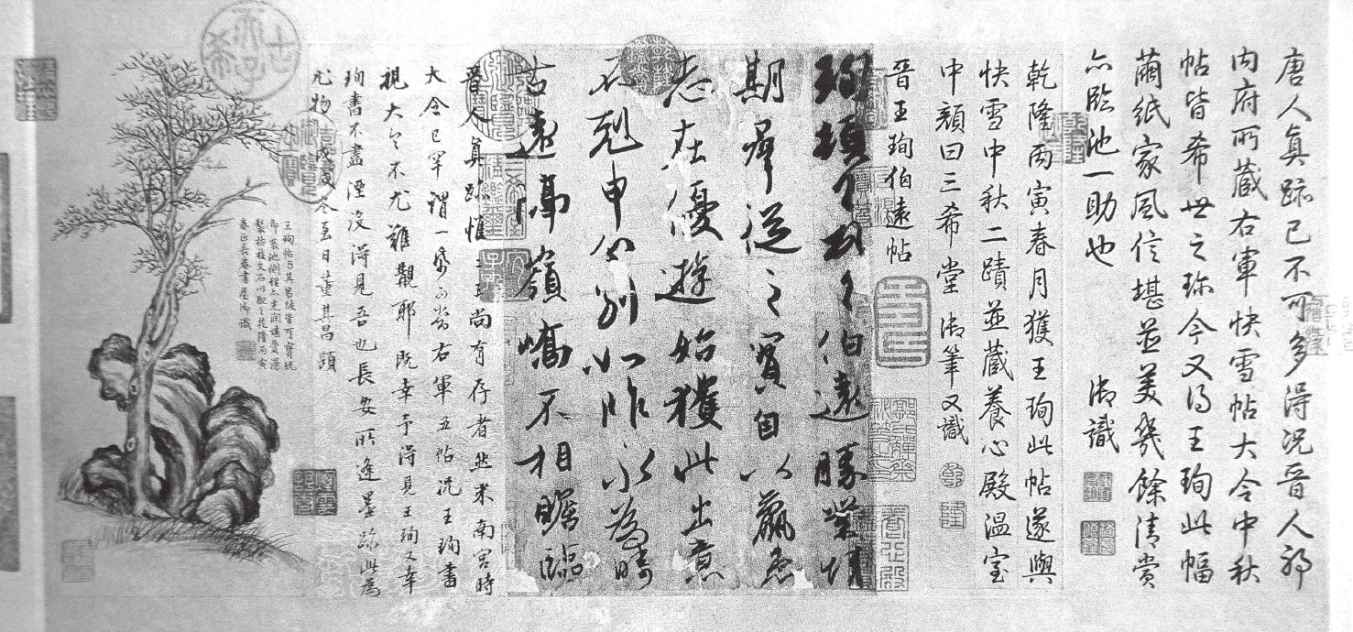 唐人真跡已不可多得況晉人耶
內府所藏右軍快雪帖大令中秋
帖皆希世之珍今又得王珣此幅
繭紙家風信堪並美幾餘清賞
亦臨池一助也 御識
乾隆丙寅春月獲王珣此帖遂與
快雪中秋二蹟並藏養心殿溫室
中顏曰三希堂 御筆又識
晉王珣伯遠帖
珣頓首頓首伯遠勝業情
期群從之寶自以羸患
志在優遊始獲此出意
不剋申分別如昨永為疇
古遠隔嶺嶠不相瞻臨
晉人真跡惟二王尚有存者然米南宮時
大令已罕謂一紙可當右軍五帖況王珣書
視大令不尤難覯耶既幸予得見王珣又幸
珣書不盡湮沒得見吾也長安所逢墨跡此為
尤物戊戌冬至日董其昌題
王珣帖與其昌跋皆可寶玩